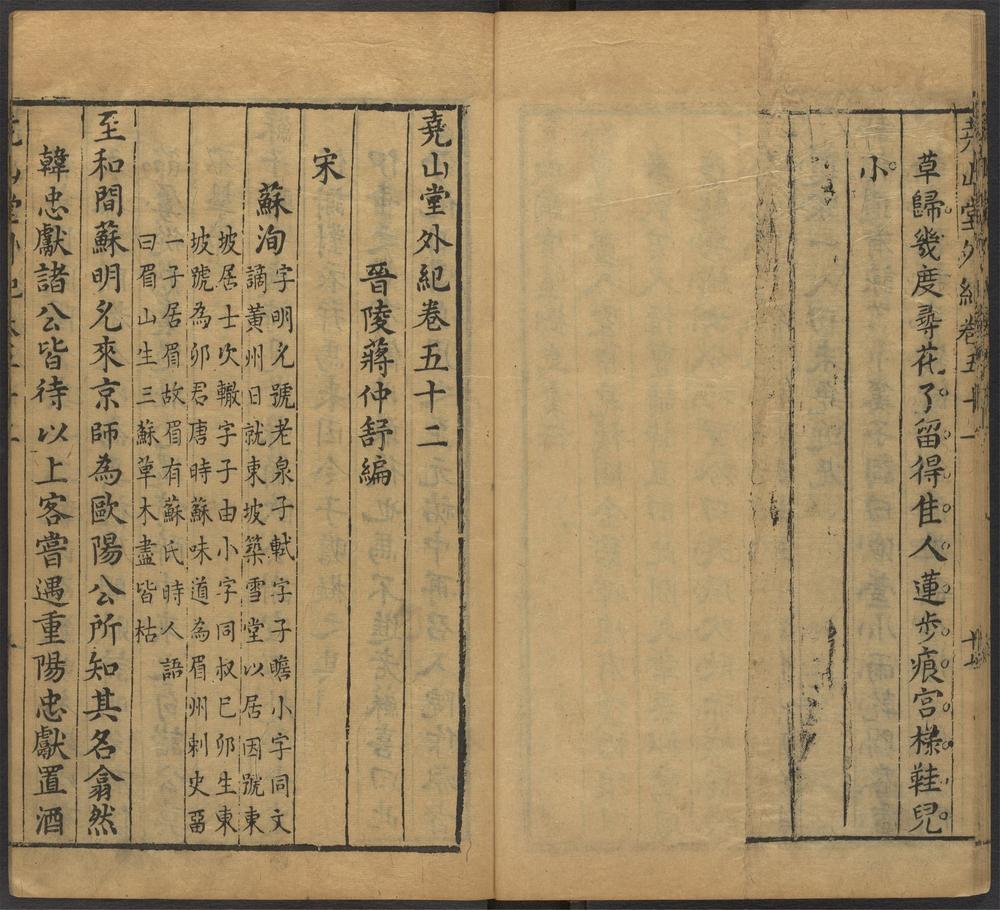 堯山堂外紀卷五十一
十七
草歸幾度尋花了留得佳人蓮步痕宮樣鞋兒
小
堯山堂外紀卷五十二
晉陵蔣仲舒編
宋
蘇洵
字明允號老泉子軾字子瞻小字同文
謫黃州日就東坡築雪堂以居因號東
坡居士次轍字子由小字同叔巳卯生東
坡號為卯君唐時蘇味道為眉州刺史畱
一子居眉故眉有蘇氏時人語
曰眉山生三蘇草木盡皆枯
至和間蘇明允來京師為歐陽公所知其名翕然
韓忠獻諸公皆待以上客嘗遇重陽忠獻置酒